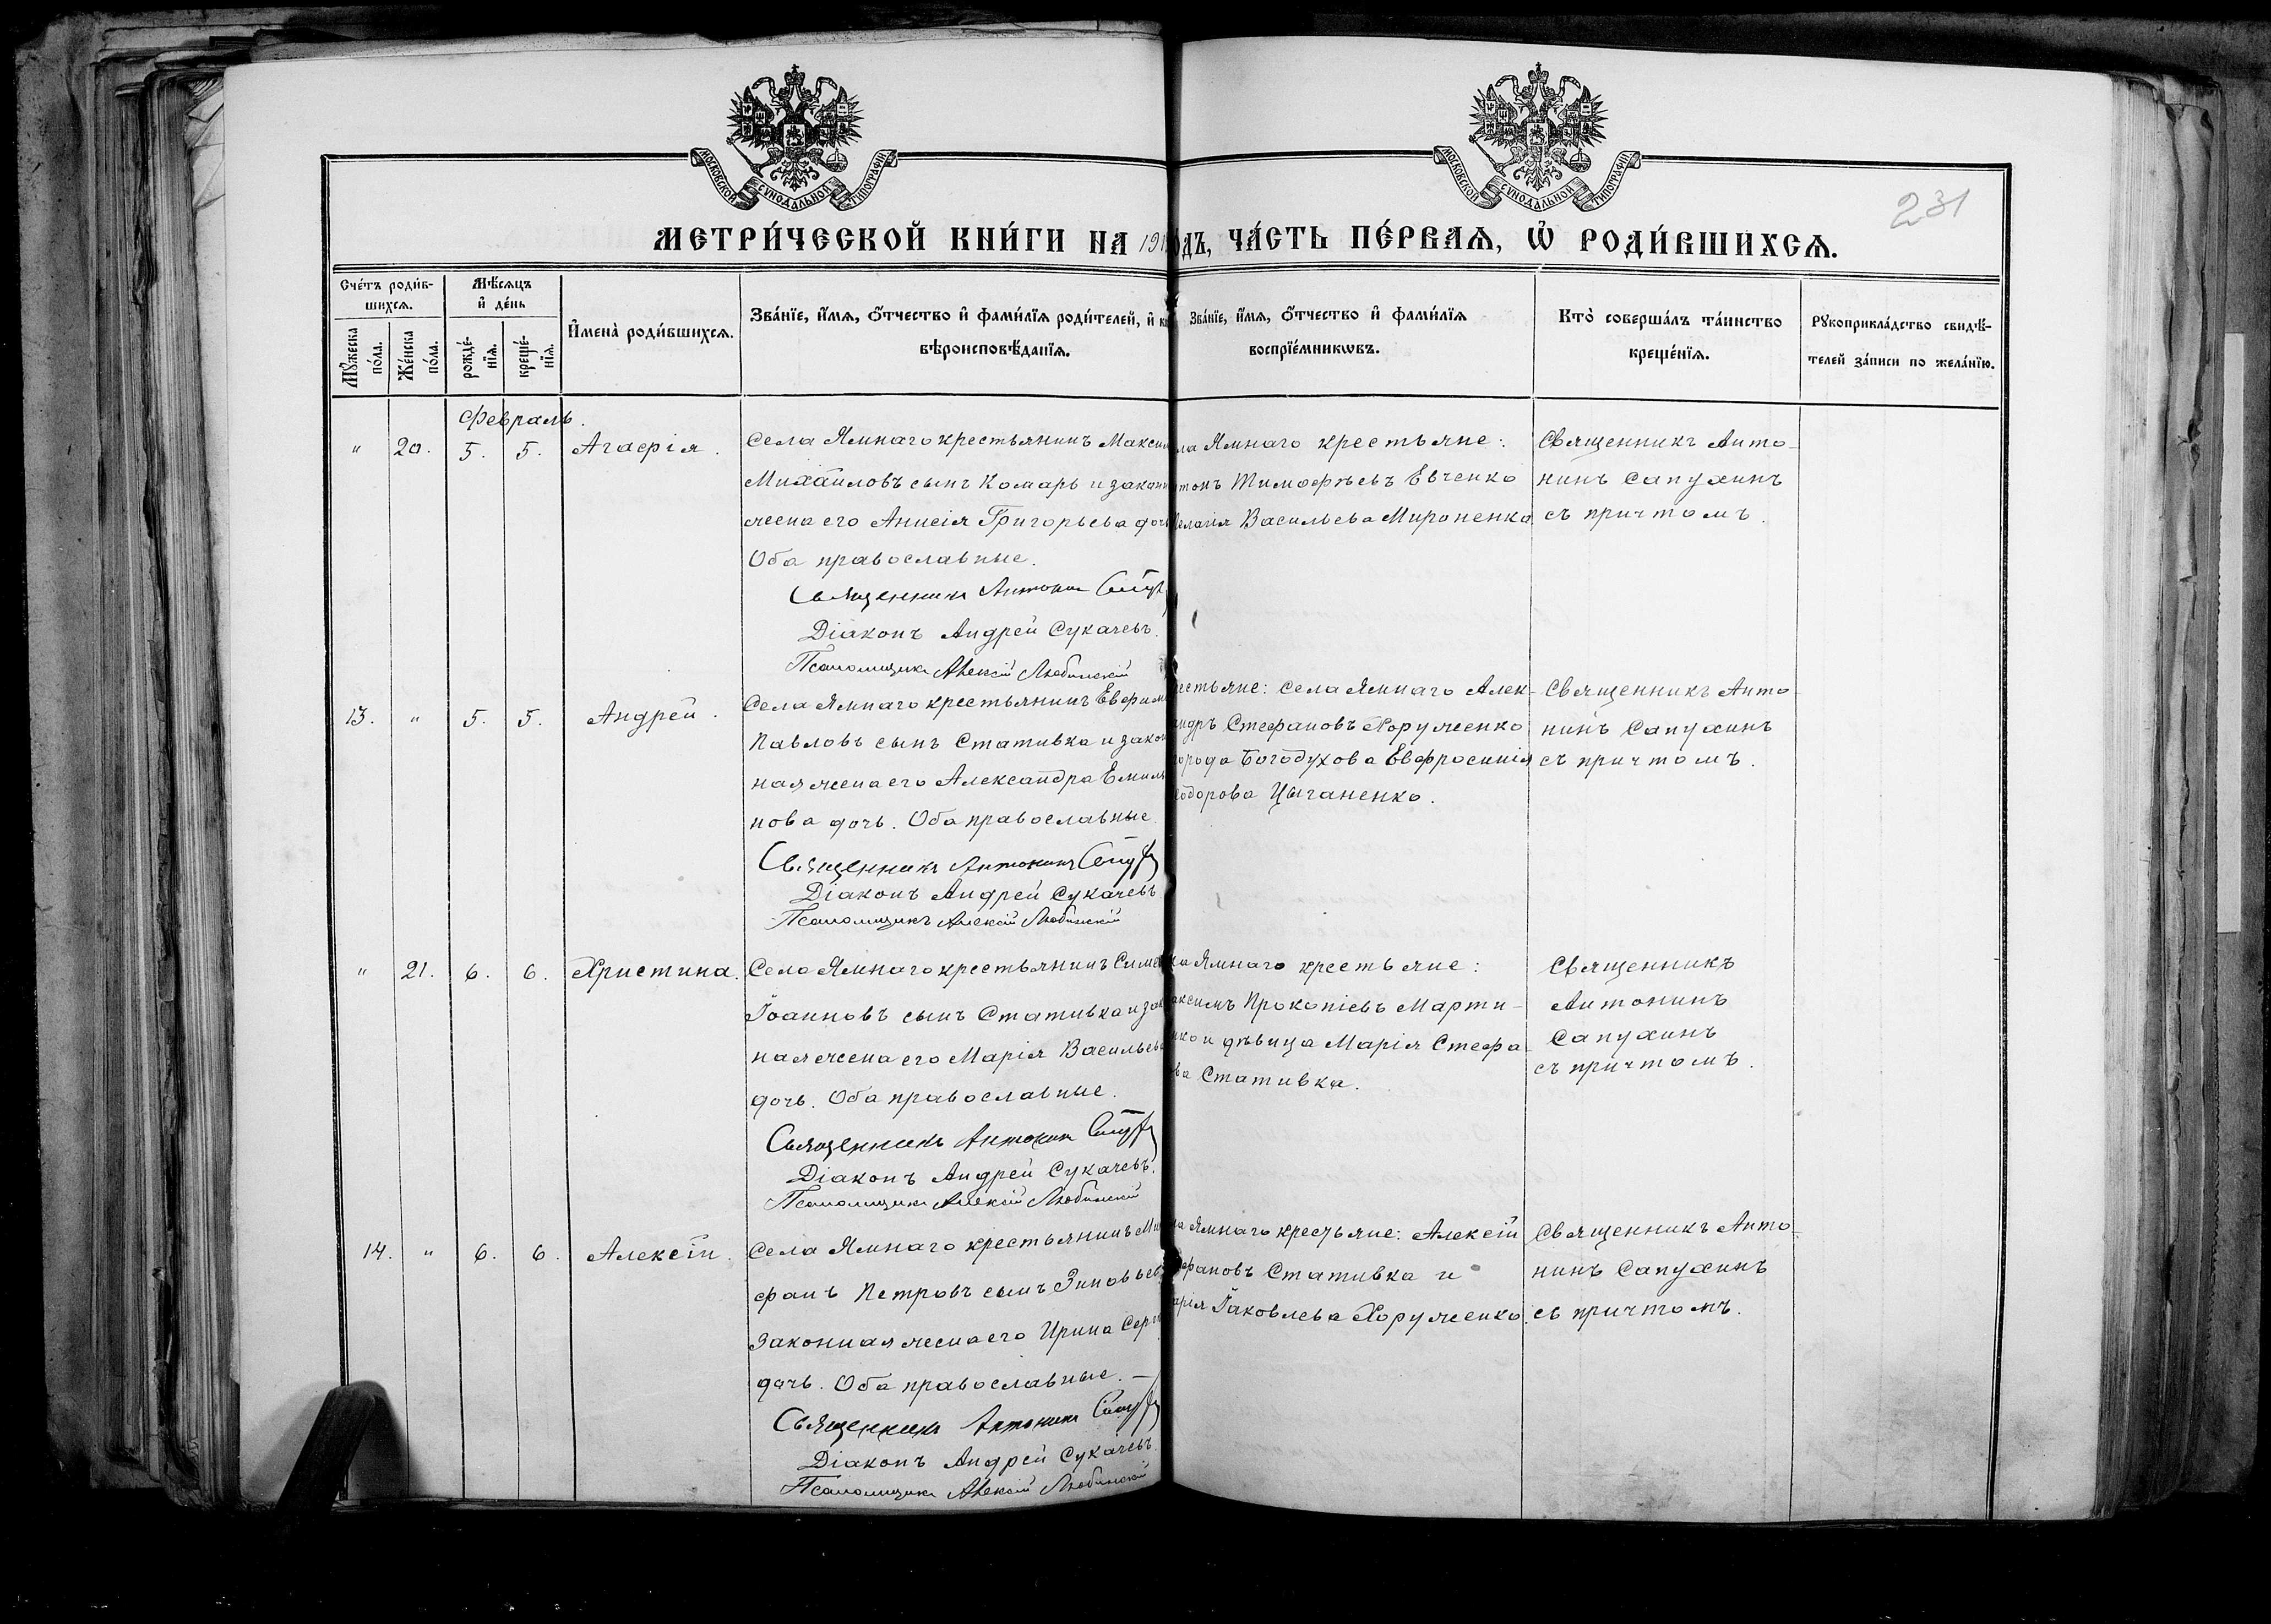 МОСКОВСКОЙ СѴНОДАЛЬНОЙ ТИПОГРАФІИ
МОСКОВСКОЙ СѴНОДАЛЬНОЙ ТИПОГРАФІИ
231
МЕТРИ́ЧЕСКОЙ КНИ́ГИ НА 191
ОДЪ, ЧА́СТЬ ПЕ́РВАЯ, Ѡ҆ РОДИ́ВШИХСЯ.
Сче́тъ роди́в-
шихся.
Мꙋ́жеска по́ла.
Же́нска по́ла.
Мѣ́сяцъ
и҆ де́нь
рожде́-
нїя.
креще́-
нїя.
И҆мена̀ роди́вшихся.
Зва́нїе, и҆́мя, ѻ҆́тчество и҆ фами́лїя роди́телей, и҆ к
вѣроисповѣ́данїя.
Зва́нїе, и҆́мя, ѻ҆́тчество и҆ фами́лїя
воспрїе́мникѡвъ.
Кто̀ соверша́лъ та́инство
креще́нїя.
Рꙋкоприкла́дство свидѣ́-
телей за́писи по жела́нїю.
Февраль.
" 20. 5. 5. Агафія.
Села Ямнаго крестьянинъ Макси
Михайловъ сынъ Комарь и закон
жена его Анисія Григорьева доч
Оба православные.
Священникъ Антонин
Діаконъ Андрей Сукачевъ.
Псаломщикъ Алексій Любинскій
ла Ямнаго крестьяне:
тонъ Тимофѣевъ Евченко
елагія Васильева Мироненко
Священникъ Анто-
нинъ Сапухинъ
съ причтомъ.
13. " 5. 5. Андрей.
Села Ямнаго крестьянинъ Ефим
Павловъ сынъ Стативка и закон
ная жена его Александра Емиль
нова дочь. Оба православные.
Священникъ Антонинъ
Діаконъ Андрей Сукачевъ
Псаломщикъ Алексій Любинскій
естьяне: села Ямнаго Алек-
андръ Стефановъ Хоруженко
города Богодухова Евфросинія
еодорова Цыганенко.
Священникъ Анто-
нинъ Сапухинъ
съ причтомъ.
" 21. 6. 6. Христина.
Села Ямнаго крестьянинъ Симе
Іоанновъ сынъ Стативка и зак
ная жена его Марія Васильева
дочь. Оба православные.
Священникъ Антонин
Діаконъ Андрей Сукачевъ.
Псаломщикъ Алексій Любинскій
ла Ямнаго крестьяне:
аксимъ Прокопіевъ Марти-
нко и дѣвица Марія Стефа-
ва Стативка.
Священникъ
Антонинъ
Сапухинъ
съ причтомъ.
14. " 6. 6. Алексій.
Села Ямнаго крестьянинъ Ми
фанъ Петровъ сынъ Зиновьев
законная жена его Ирина Серг
дочь. Оба православные.
Священникъ Антонинъ
Діаконъ Андрей Сукачевъ
Псаломщикъ Алексій Любинскій
ла Ямнаго крестьяне: Алексій
ефановъ Стативка и
арія Іаковлева Хоруженко.
Священникъ Анто-
нинъ Сапухинъ
съ причтомъ.